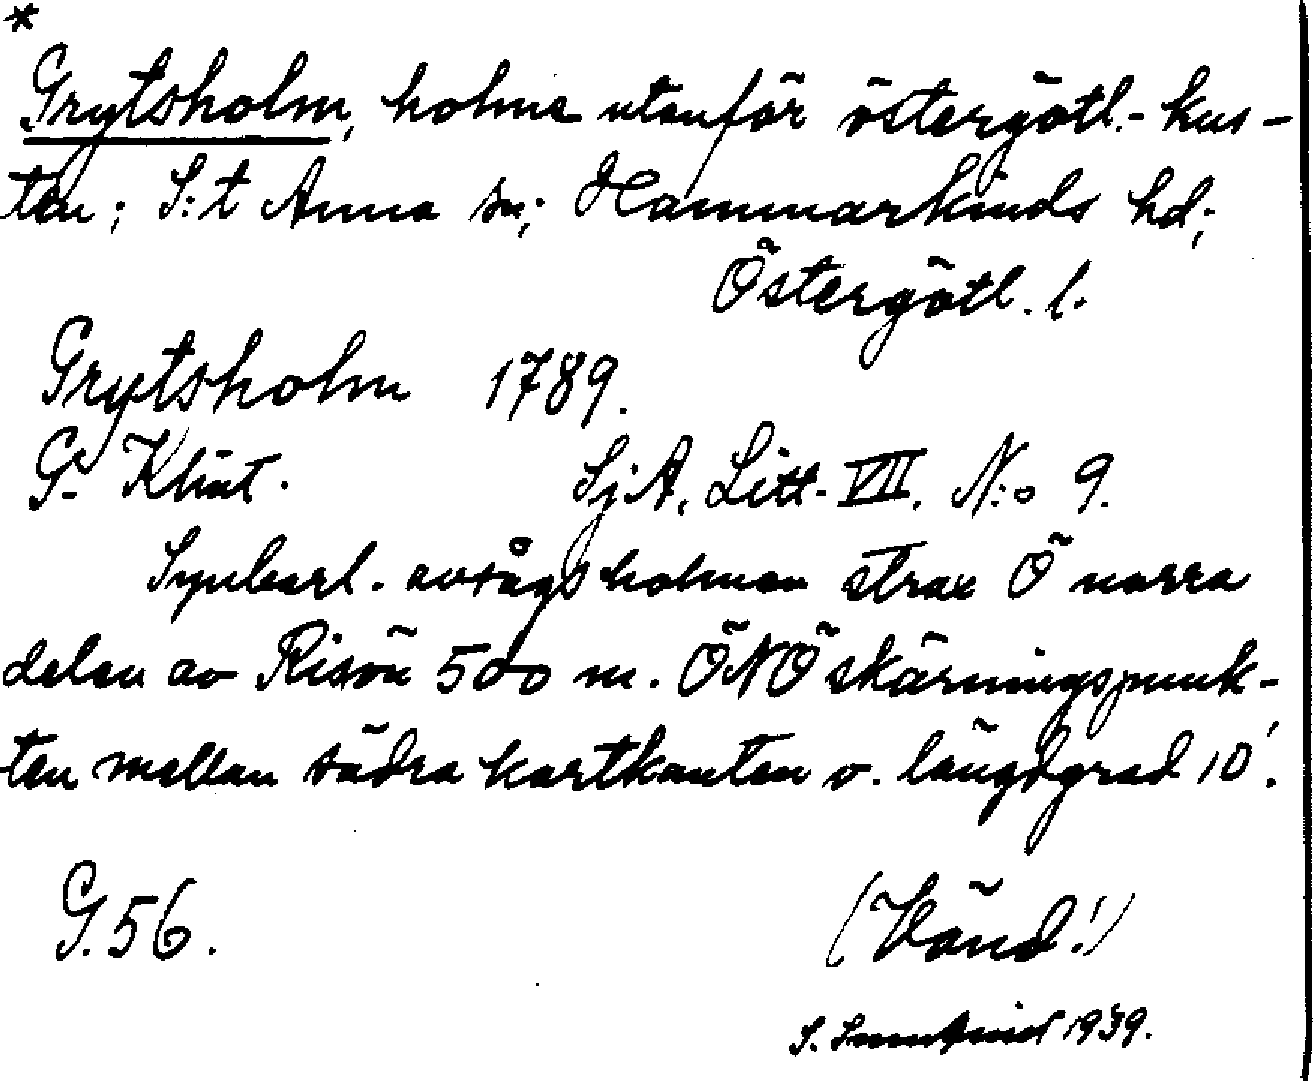 *
Grytsholm, holme utanför östergötl.-kus-
ten; S:t Anna sn; Hammarkinds hd;
Östergötl. l.
Grytsholm 1789.
G. Klint. SjA, Litt. VII. N:o 9.
Synbarl. avsågs holmen strax Ö norra
delen av Risön 500 m. ÖNÖ skärningspunk-
ten mellan södra kartkanten o. längdgrad 10'.
G. 56. (Vänd!)
S. 1939.